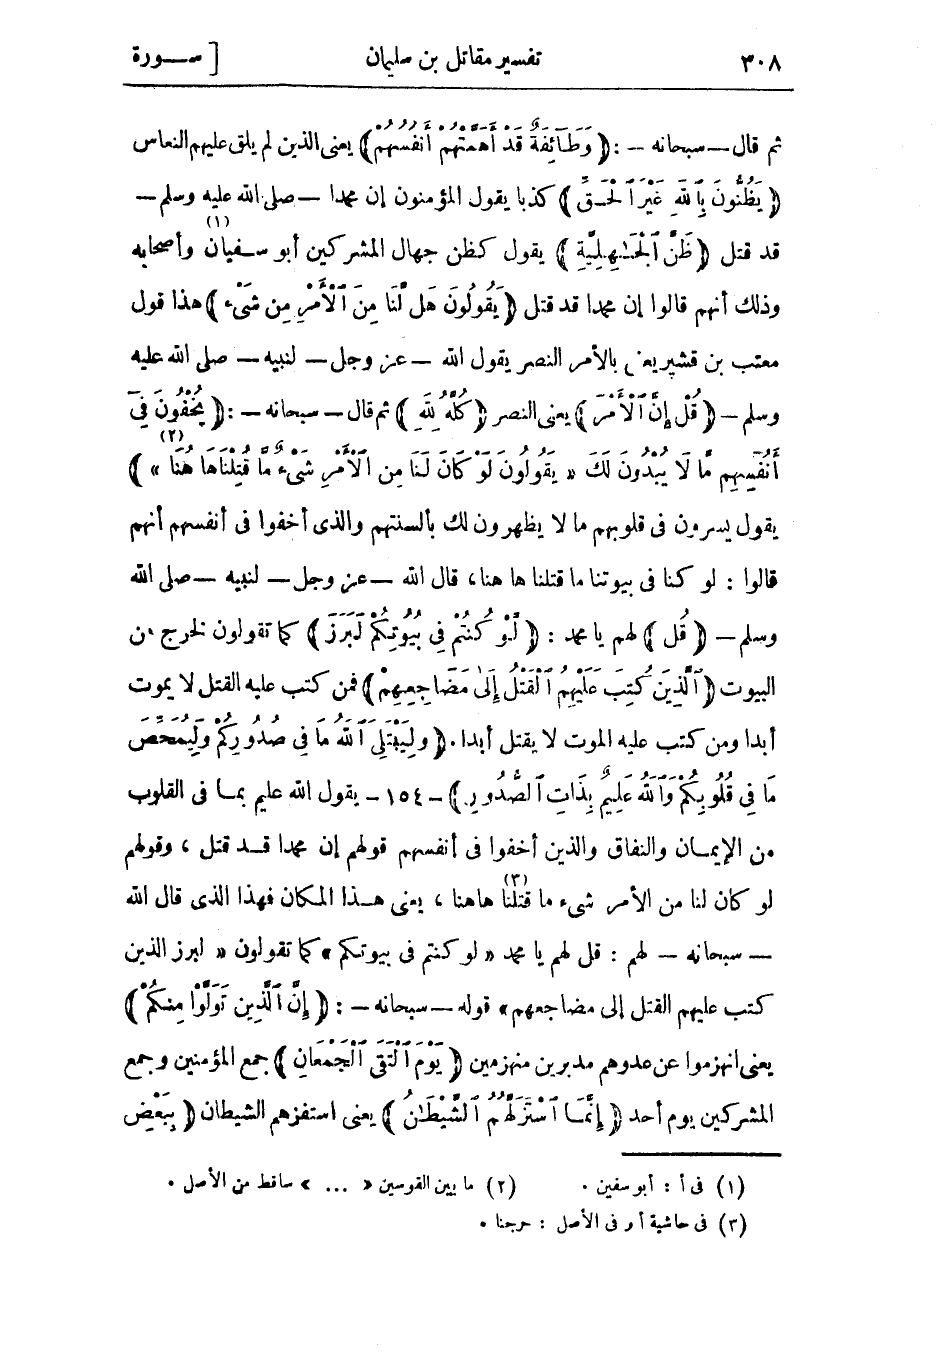 ٣٠٨ تفسير مقاتل بن سليمان [ ســورة
ثم قال — سبحانه — : ﴿ وَطَآئِفَةٌ قَدْ أَهَمَّتْهُمْ أَنفُسُهُمْ ﴾ يعنى الذين لم يلق عليهم النعاس
﴿ يَظُنُّونَ بِٱللَّهِ غَيْرَ ٱلْحَقِّ ﴾ كذبا يقول المؤمنون إن محمدا — صلى الله عليه وسلم —
قد قتل ﴿ ظَنَّ ٱلْجَـٰهِلِيَّةِ ﴾ يقول كظن جهال المشركين أبو سفيان (١) وأصحابه
وذلك أنهم قالوا إن محمدا قد قتل ﴿ يَقُولُونَ هَل لَّنَا مِنَ ٱلْأَمْرِ مِن شَىْءٍ ﴾ هذا قول
معتب بن قشير يعنى بالأمر النصر يقول الله — عز وجل — لنبيه — صلى الله عليه
وسلم — ﴿ قُلْ إِنَّ ٱلْأَمْرَ ﴾ يعنى النصر ﴿ كُلَّهُ لِلَّهِ ﴾ ثم قال — سبحانه — : ﴿ يُخْفُونَ فِىٓ
أَنفُسِهِم مَّا لَا يُبْدُونَ لَكَ « يَقُولُونَ لَوْ كَانَ لَنَا مِنَ ٱلْأَمْرِ شَىْءٌ مَّا قُتِلْنَاهَا هُنَا » (٢) ﴾
يقول يسرون فى قلوبهم ما لا يظهرون لك بألسنتهم والذى أخفوا فى أنفسهم أنهم
قالوا : لو كنا فى بيوتنا ما قتلنا ها هنا ، قال الله — عز وجل — لنبيه — صلى الله
وسلم — ﴿ قُل ﴾ لهم يا محمد : ﴿ لَّوْ كُنتُمْ فِى بُيُوتِكُمْ لَبَرَزَ ﴾ كما تقولون لخرج من
البيوت ﴿ ٱلَّذِينَ كُتِبَ عَلَيْهِمُ ٱلْقَتْلُ إِلَىٰ مَضَاجِعِهِمْ ﴾ فمن كتب عليه القتل لا يموت
أبدا ومن كتب عليه الموت لا يقتل أبدا . ﴿ وَلِيَبْتَلِىَ ٱللَّهُ مَا فِى صُدُورِكُمْ وَلِيُمَحِّصَ
مَا فِى قُلُوبِكُمْ وَٱللَّهُ عَلِيمٌ بِذَاتِ ٱلصُّدُورِ ﴾ - ١٥٤ - يقول الله عليم بمـا فى القلوب
من الإيمـان والنفاق والذين أخفوا فى أنفسهم قولهم إن محمدا قــد قتل ، وقولهم
لو كان لنا من الأمر شىء ما قتلنا (٣) هاهنا ، يعنى هـذا المكان فهذا الذى قال الله
— سبحانه — لهم : قل لهم يا محمد « لو كنتم فى بيوتكم » كما تقولون « لبرز الذين
كتب عليهم القتل إلى مضاجعهم » قوله — سبحانه — : ﴿ إِنَّ ٱلَّذِينَ تَوَلَّوْا مِنكُمْ ﴾
يعنى انهزموا عن عدوهم مدبرين منهزمين ﴿ يَوْمَ ٱلْتَقَى ٱلْجَمْعَانِ ﴾ جمع المؤمنين وجمع
المشركين يوم أحد ﴿ إِنَّمَـا ٱسْتَزَلَّهُمُ ٱلشَّيْطَـٰنُ ﴾ يعنى استفزهم الشيطان ﴿ بِبَعْضِ
(١) فى أ : أبو سفين . (٢) ما بين القوسين « ... » ساقط من الأصل .
(٣) فى حاشية أ و فى الأصل : حرجنا .